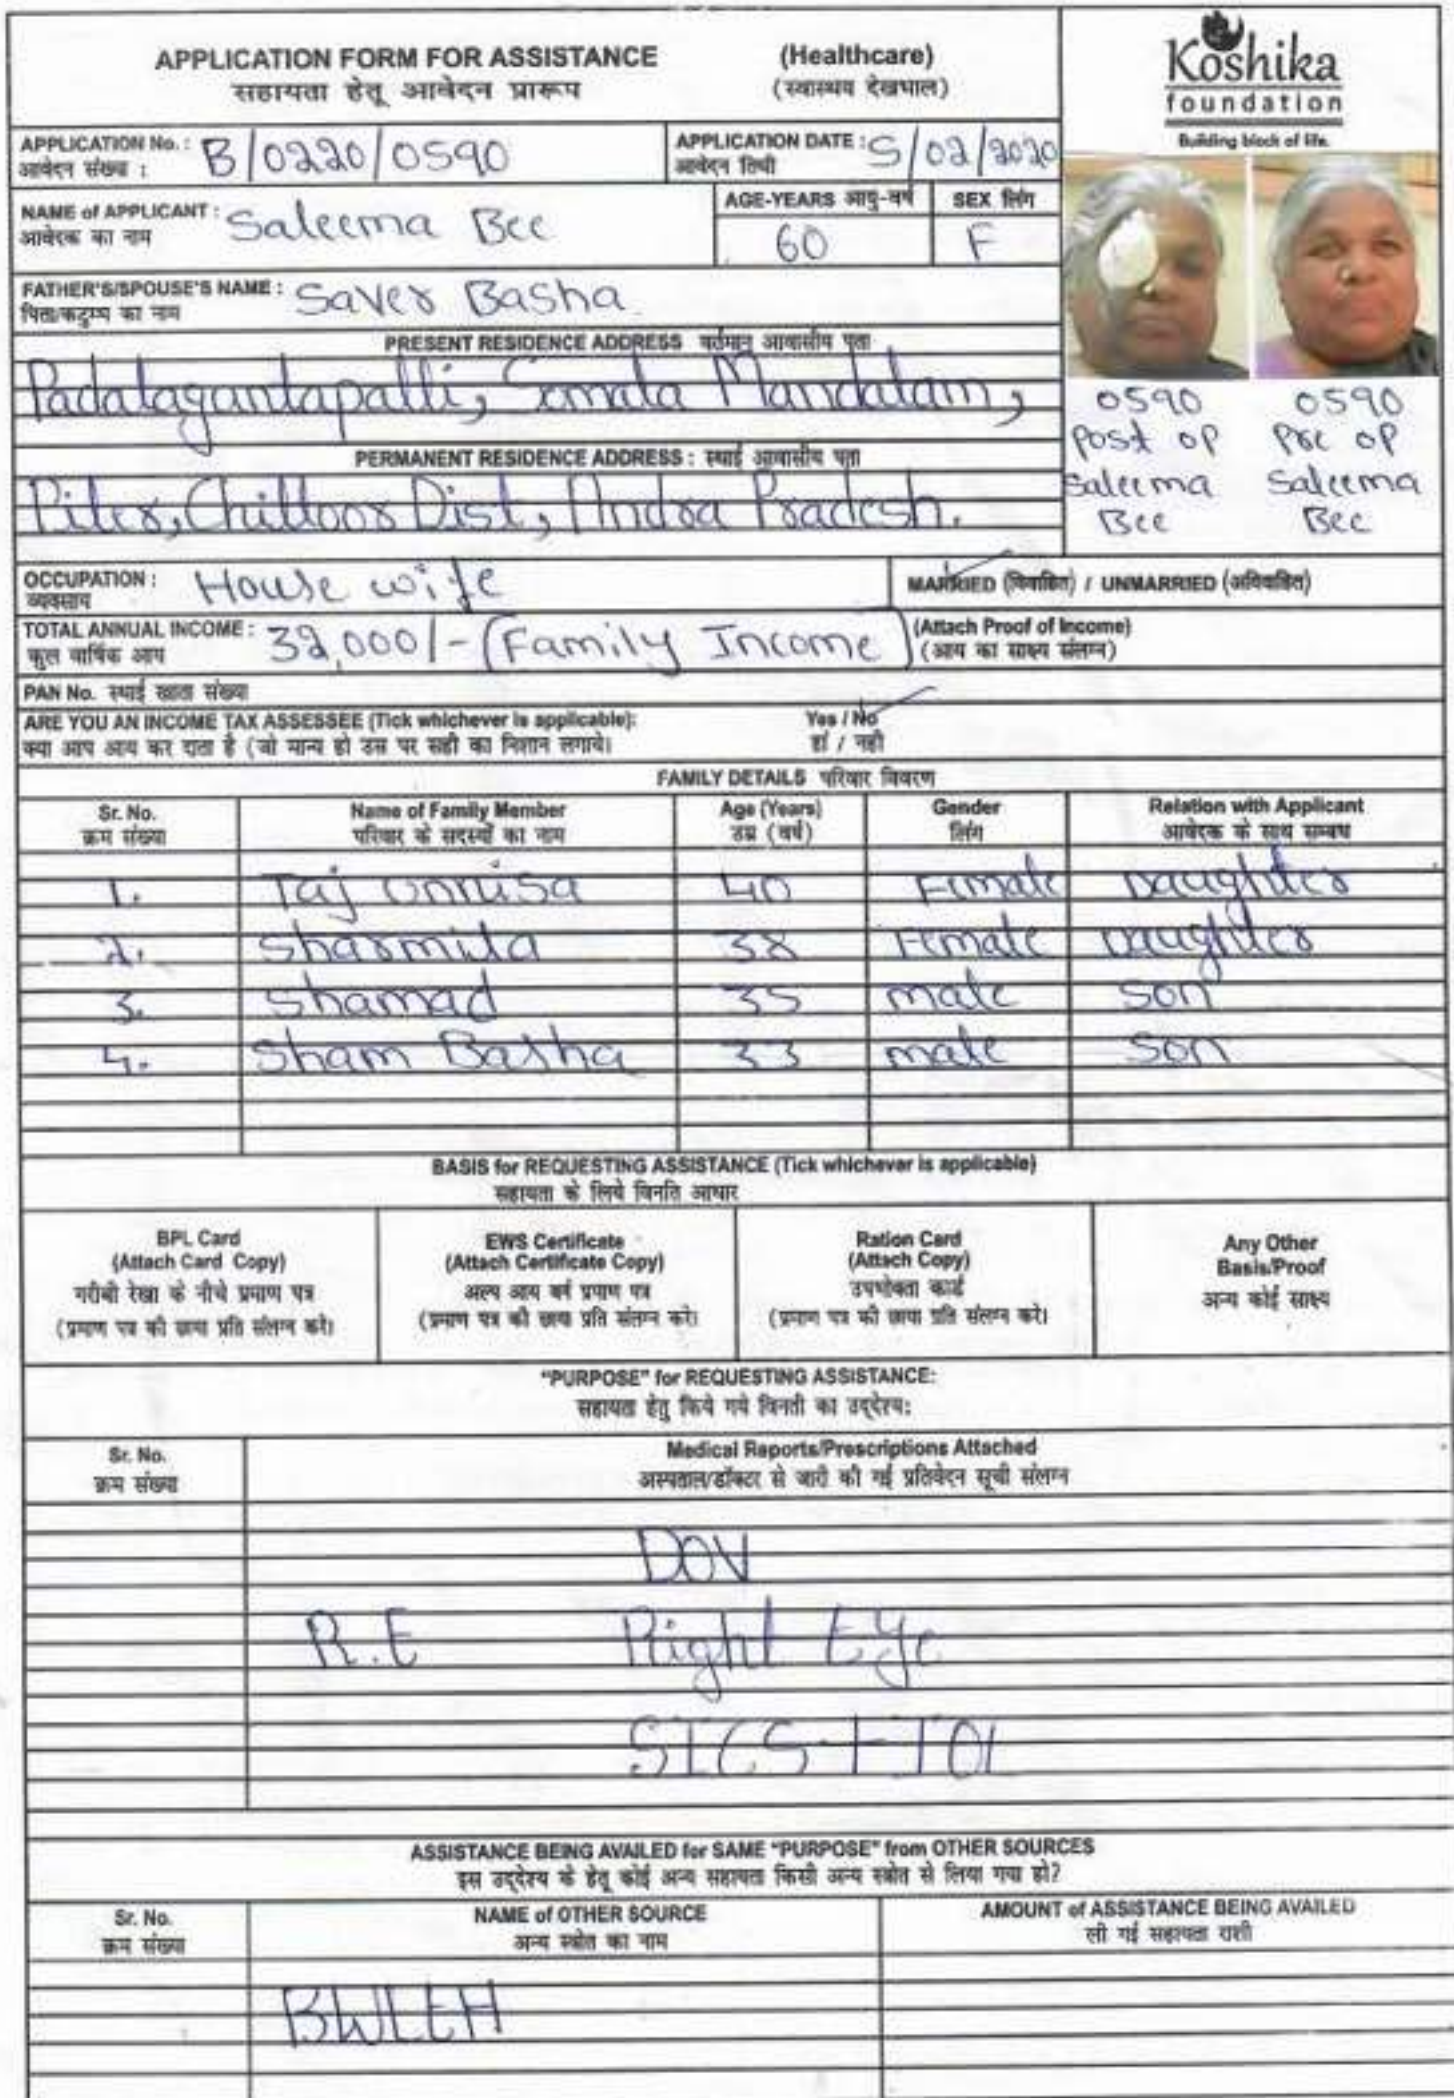 APPLICATION FORM FOR ASSISTANCE (Healthcare)
सहायता हेतू आवेदन प्रारूप (स्वास्थ्य देखभाल)
Koshika
foundation
Building block of life.
APPLICATION No. : B/0220/0590
आवेदन संख्या :
APPLICATION DATE : 5/02/2020
आवेदन तिथी
NAME of APPLICANT : Saleema Bee
आवेदक का नाम
AGE-YEARS आयु-वर्ष
60
SEX लिंग
F
FATHER'S/SPOUSE'S NAME : Saver Basha
पिता/कटुम्ब का नाम
PRESENT RESIDENCE ADDRESS वर्तमान आवासीय पता
Padalagantapalli, Somala Mandalam,
PERMANENT RESIDENCE ADDRESS : स्थाई आवासीय पता
Piler, Chittoor Dist, Andra Pradesh.
0590 0590
Post op Pre op
Saleema Saleema
Bee Bee
OCCUPATION : House wife
व्यवसाय
MARRIED (विवाहित) / UNMARRIED (अविवाहित)
TOTAL ANNUAL INCOME : 32,000/- (Family Income) (Attach Proof of Income)
कुल वार्षिक आय (आय का साक्ष्य संलग्न)
PAN No. स्थाई खाता संख्या
ARE YOU AN INCOME TAX ASSESSEE (Tick whichever is applicable): Yes / No
क्या आप आय कर दाता है (जो मान्य हो उस पर सही का निशान लगाये। हां / नही
FAMILY DETAILS परिवार विवरण
Sr. No. Name of Family Member Age (Years) Gender Relation with Applicant
क्रम संख्या परिवार के सदस्यों का नाम उम्र (वर्ष) लिंग आवेदक के साथ सम्बध
1. Taj Unnisa 40 Female Daughter
2. Sharmila 38 Female Daughter
3. Shamad 35 male Son
4. Sham Basha 33 male Son
BASIS for REQUESTING ASSISTANCE (Tick whichever is applicable)
सहायता के लिये विनति आधार
BPL Card
(Attach Card Copy)
गरीबी रेखा के नीचे प्रमाण पत्र
(प्रमाण पत्र की छाया प्रति संलग्न करे)
EWS Certificate
(Attach Certificate Copy)
अल्प आय वर्ग प्रमाण पत्र
(प्रमाण पत्र की छाया प्रति संलग्न करे)
Ration Card
(Attach Copy)
उपभोक्ता कार्ड
(प्रमाण पत्र की छाया प्रति संलग्न करे)
Any Other
Basis/Proof
अन्य कोई साक्ष्य
"PURPOSE" for REQUESTING ASSISTANCE:
सहायता हेतु किये गये विनती का उद्देश्य:
Sr. No. Medical Reports/Prescriptions Attached
क्रम संख्या अस्पताल/डॉक्टर से जारी की गई प्रतिवेदन सूची संलग्न
DOV
R.E Right Eye
SICS + IOL
ASSISTANCE BEING AVAILED for SAME "PURPOSE" from OTHER SOURCES
इस उद्देश्य के हेतू कोई अन्य सहायता किसी अन्य स्त्रोत से लिया गया हो?
Sr. No. NAME of OTHER SOURCE AMOUNT of ASSISTANCE BEING AVAILED
क्रम संख्या अन्य स्त्रोत का नाम ली गई सहायता राशी
BWLEH